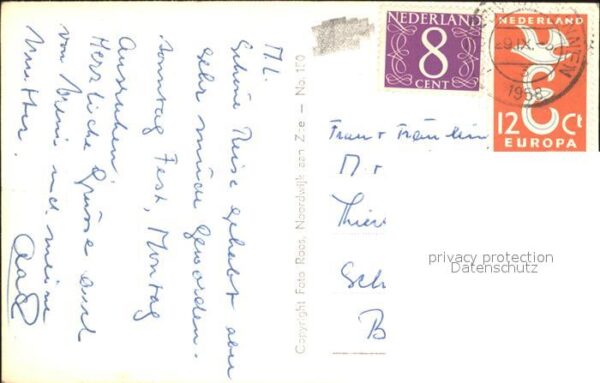 M.L.
Schöne Reise gehabt aber
sehr müde geworden.
Sonntag Fest, Montag
Ausruhen.
Herzliche Grüsse auch
von Meini und meine
Mutter.
Copyright Foto Roos, Noordwijk aan Zee — No. 150
NEDERLAND
8
CENT
NEDERLAND
12 Ct
EUROPA
29.IX
1958
Frau + Fräulein
M
Thier
Sch
B
privacy protection
Datenschutz